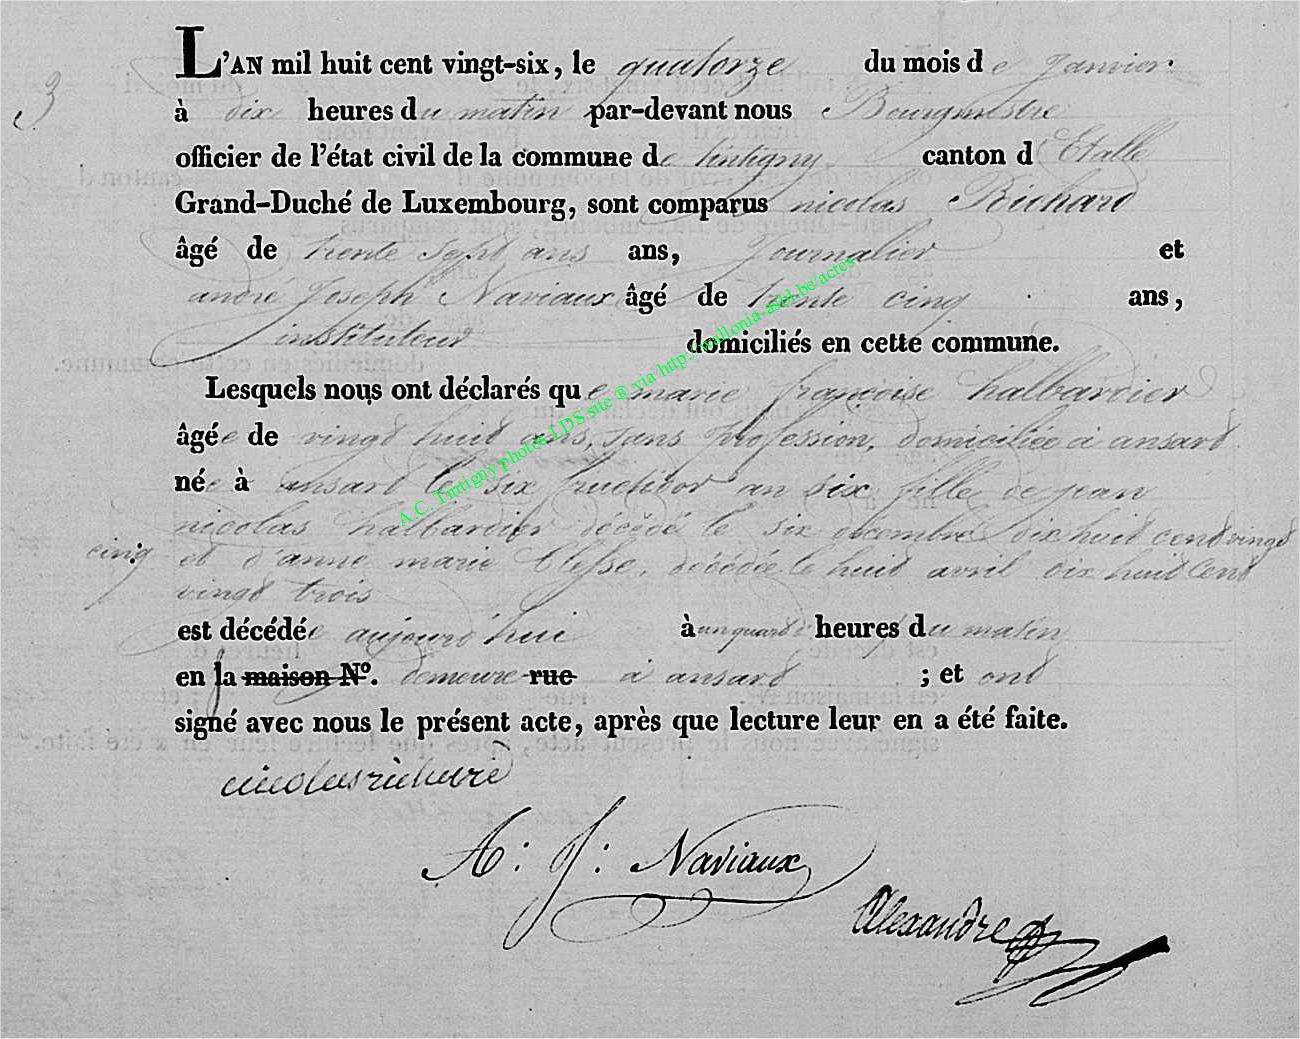 L'AN mil huit cent vingt-six, le quatorze du mois de Janvier
3
à dix heures du matin par-devant nous Bourgmestre
officier de l'état civil de la commune de tintigny canton d'Etalle
Grand-Duché de Luxembourg, sont comparus nicolas Richard
âgé de trente Sept ans ans, Journalier et
andre Joseph Naviaux âgé de trente cinq ans,
instituteur domiciliés en cette commune.
Lesquels nous ont déclarés que marie françoise halbardier
âgée de vingt huit ans, sans profession, domiciliée à ansart
née à ansart le six fructidor an six fille de jean
nicolas halbardier décédé le six decembre dix huit cent vingt
cinq et d'anne marie Clesse, décédée le huit avril dix huit Cent
vingt trois
est décédée aujourd'hui à un quart d' heures du matin
en la maison N°. demeure rue à ansart ; et ont
signé avec nous le présent acte, après que lecture leur en a été faite.
nicolas richard
A: J: Naviaux
Alexandre
A.C. Tintigny photos LDS site ® via http://wallonia-asbl.be/actes